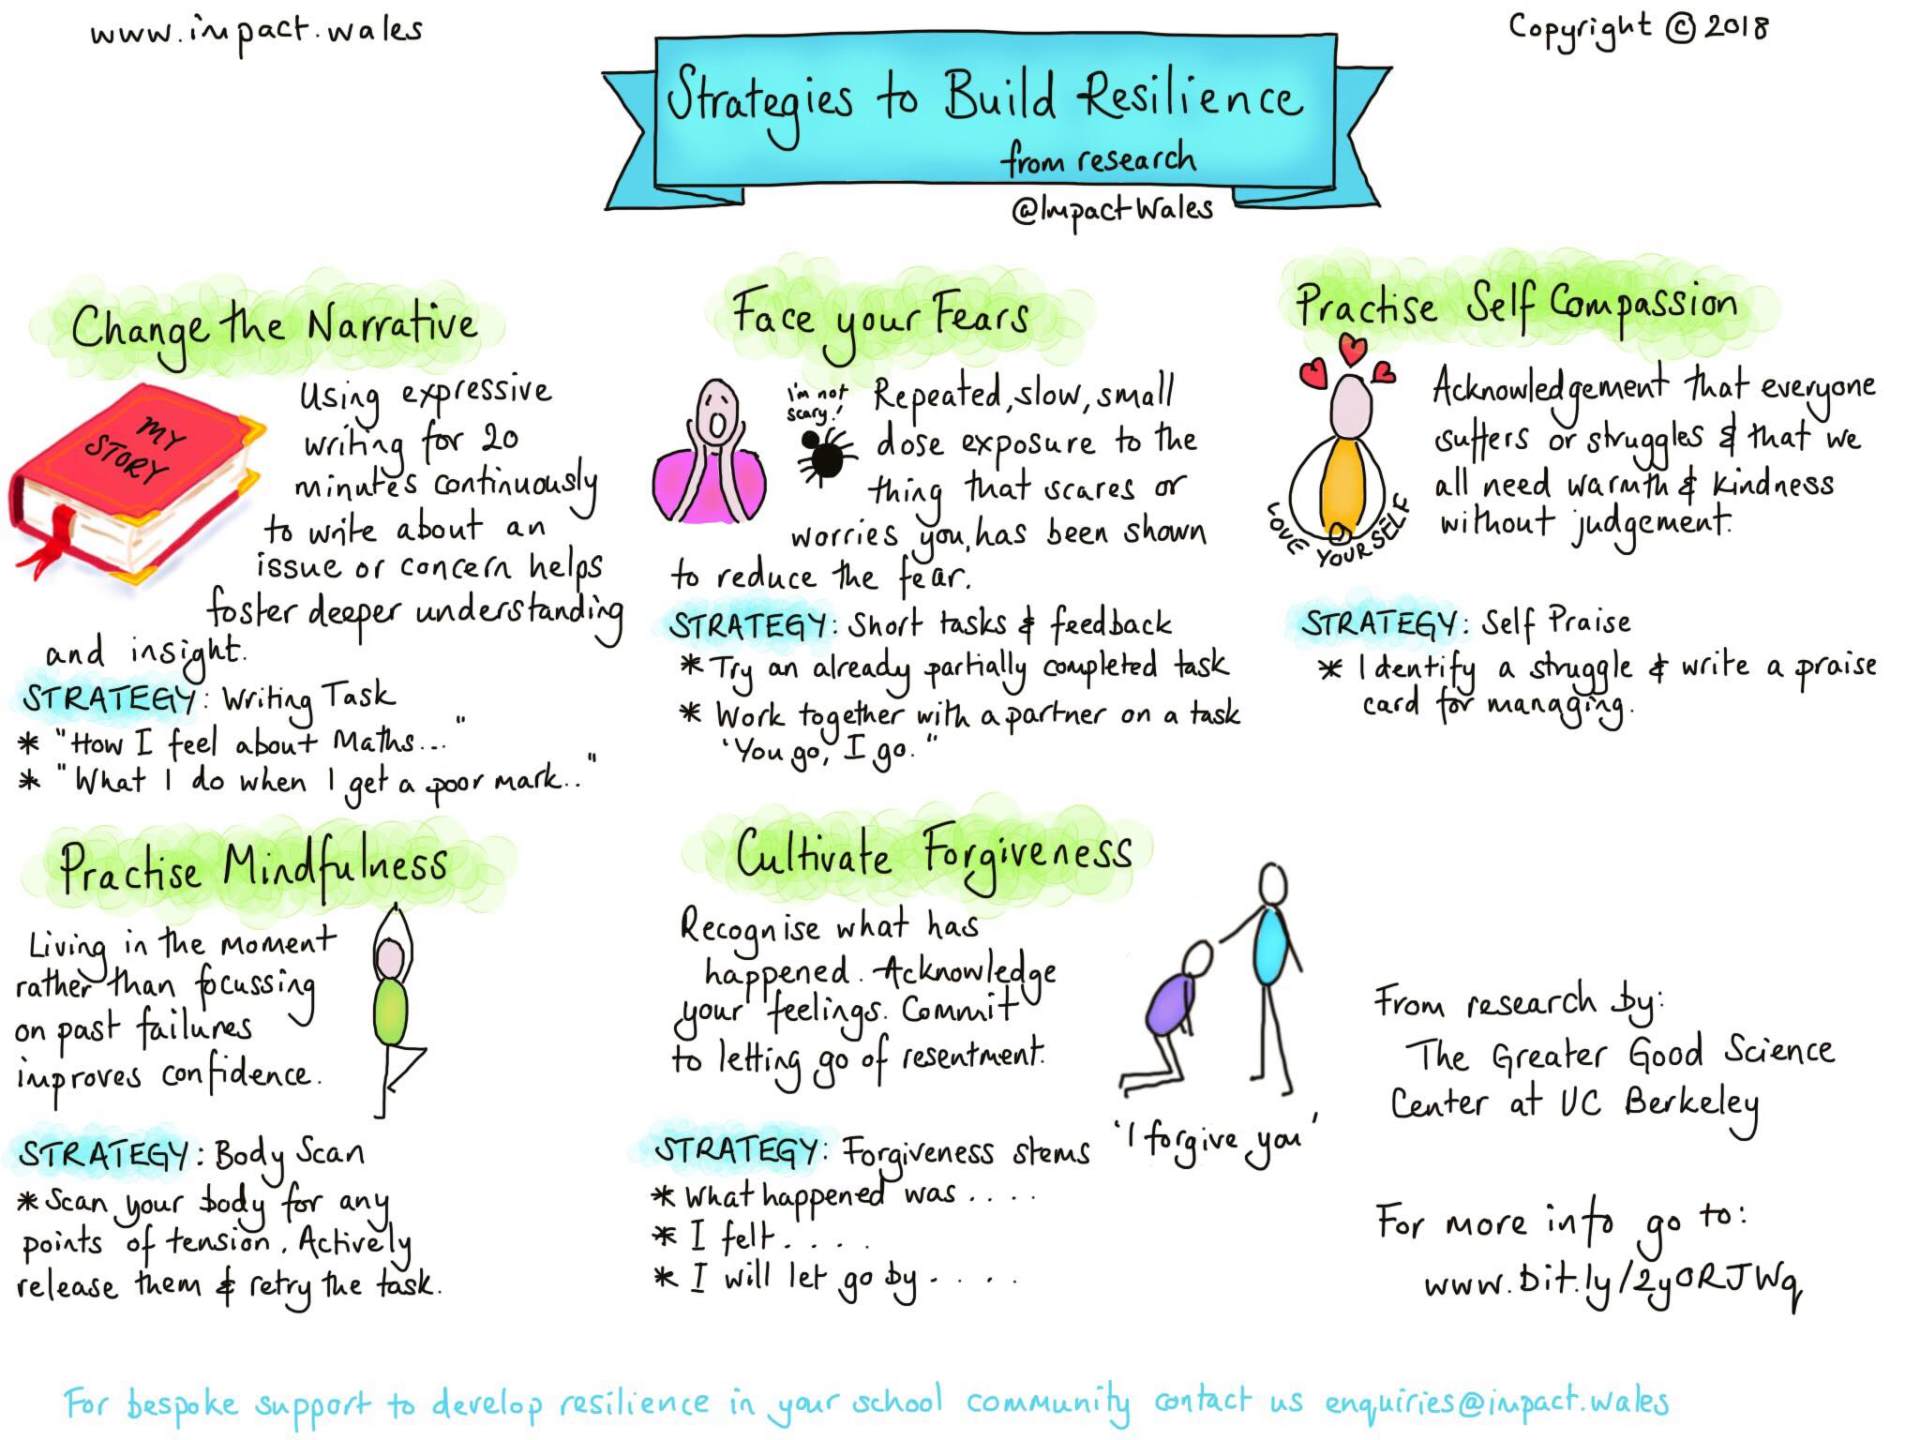 www.impact.wales
Copyright © 2018
Strategies to Build Resilience
from research
@ImpactWales
Change the Narrative
MY
STORY
Using expressive
writing for 20
minutes continuously
to write about an
issue or concern helps
foster deeper understanding
and insight.
STRATEGY: Writing Task
* "How I feel about Maths..."
* "What I do when I get a poor mark.."
Face your Fears
i'm not
scary!
Repeated, slow, small
dose exposure to the
thing that scares or
worries you, has been shown
to reduce the fear.
STRATEGY: Short tasks & feedback
* Try an already partially completed task
* Work together with a partner on a task
'You go, I go."
Practise Self Compassion
LOVE YOURSELF
Acknowledgement that everyone
suffers or struggles & that we
all need warmth & kindness
without judgement.
STRATEGY: Self Praise
* Identify a struggle & write a praise
card for managing.
Practise Mindfulness
Living in the moment
rather than focussing
on past failures
improves confidence.
STRATEGY: Body Scan
* Scan your body for any
points of tension. Actively
release them & retry the task.
Cultivate Forgiveness
Recognise what has
happened. Acknowledge
your feelings. Commit
to letting go of resentment.
'I forgive you'
STRATEGY: Forgiveness stems
* What happened was ....
* I felt ....
* I will let go by ....
From research by:
The Greater Good Science
Center at UC Berkeley
For more info go to:
www.bit.ly/2yORJWq
For bespoke support to develop resilience in your school community contact us enquiries@impact.wales